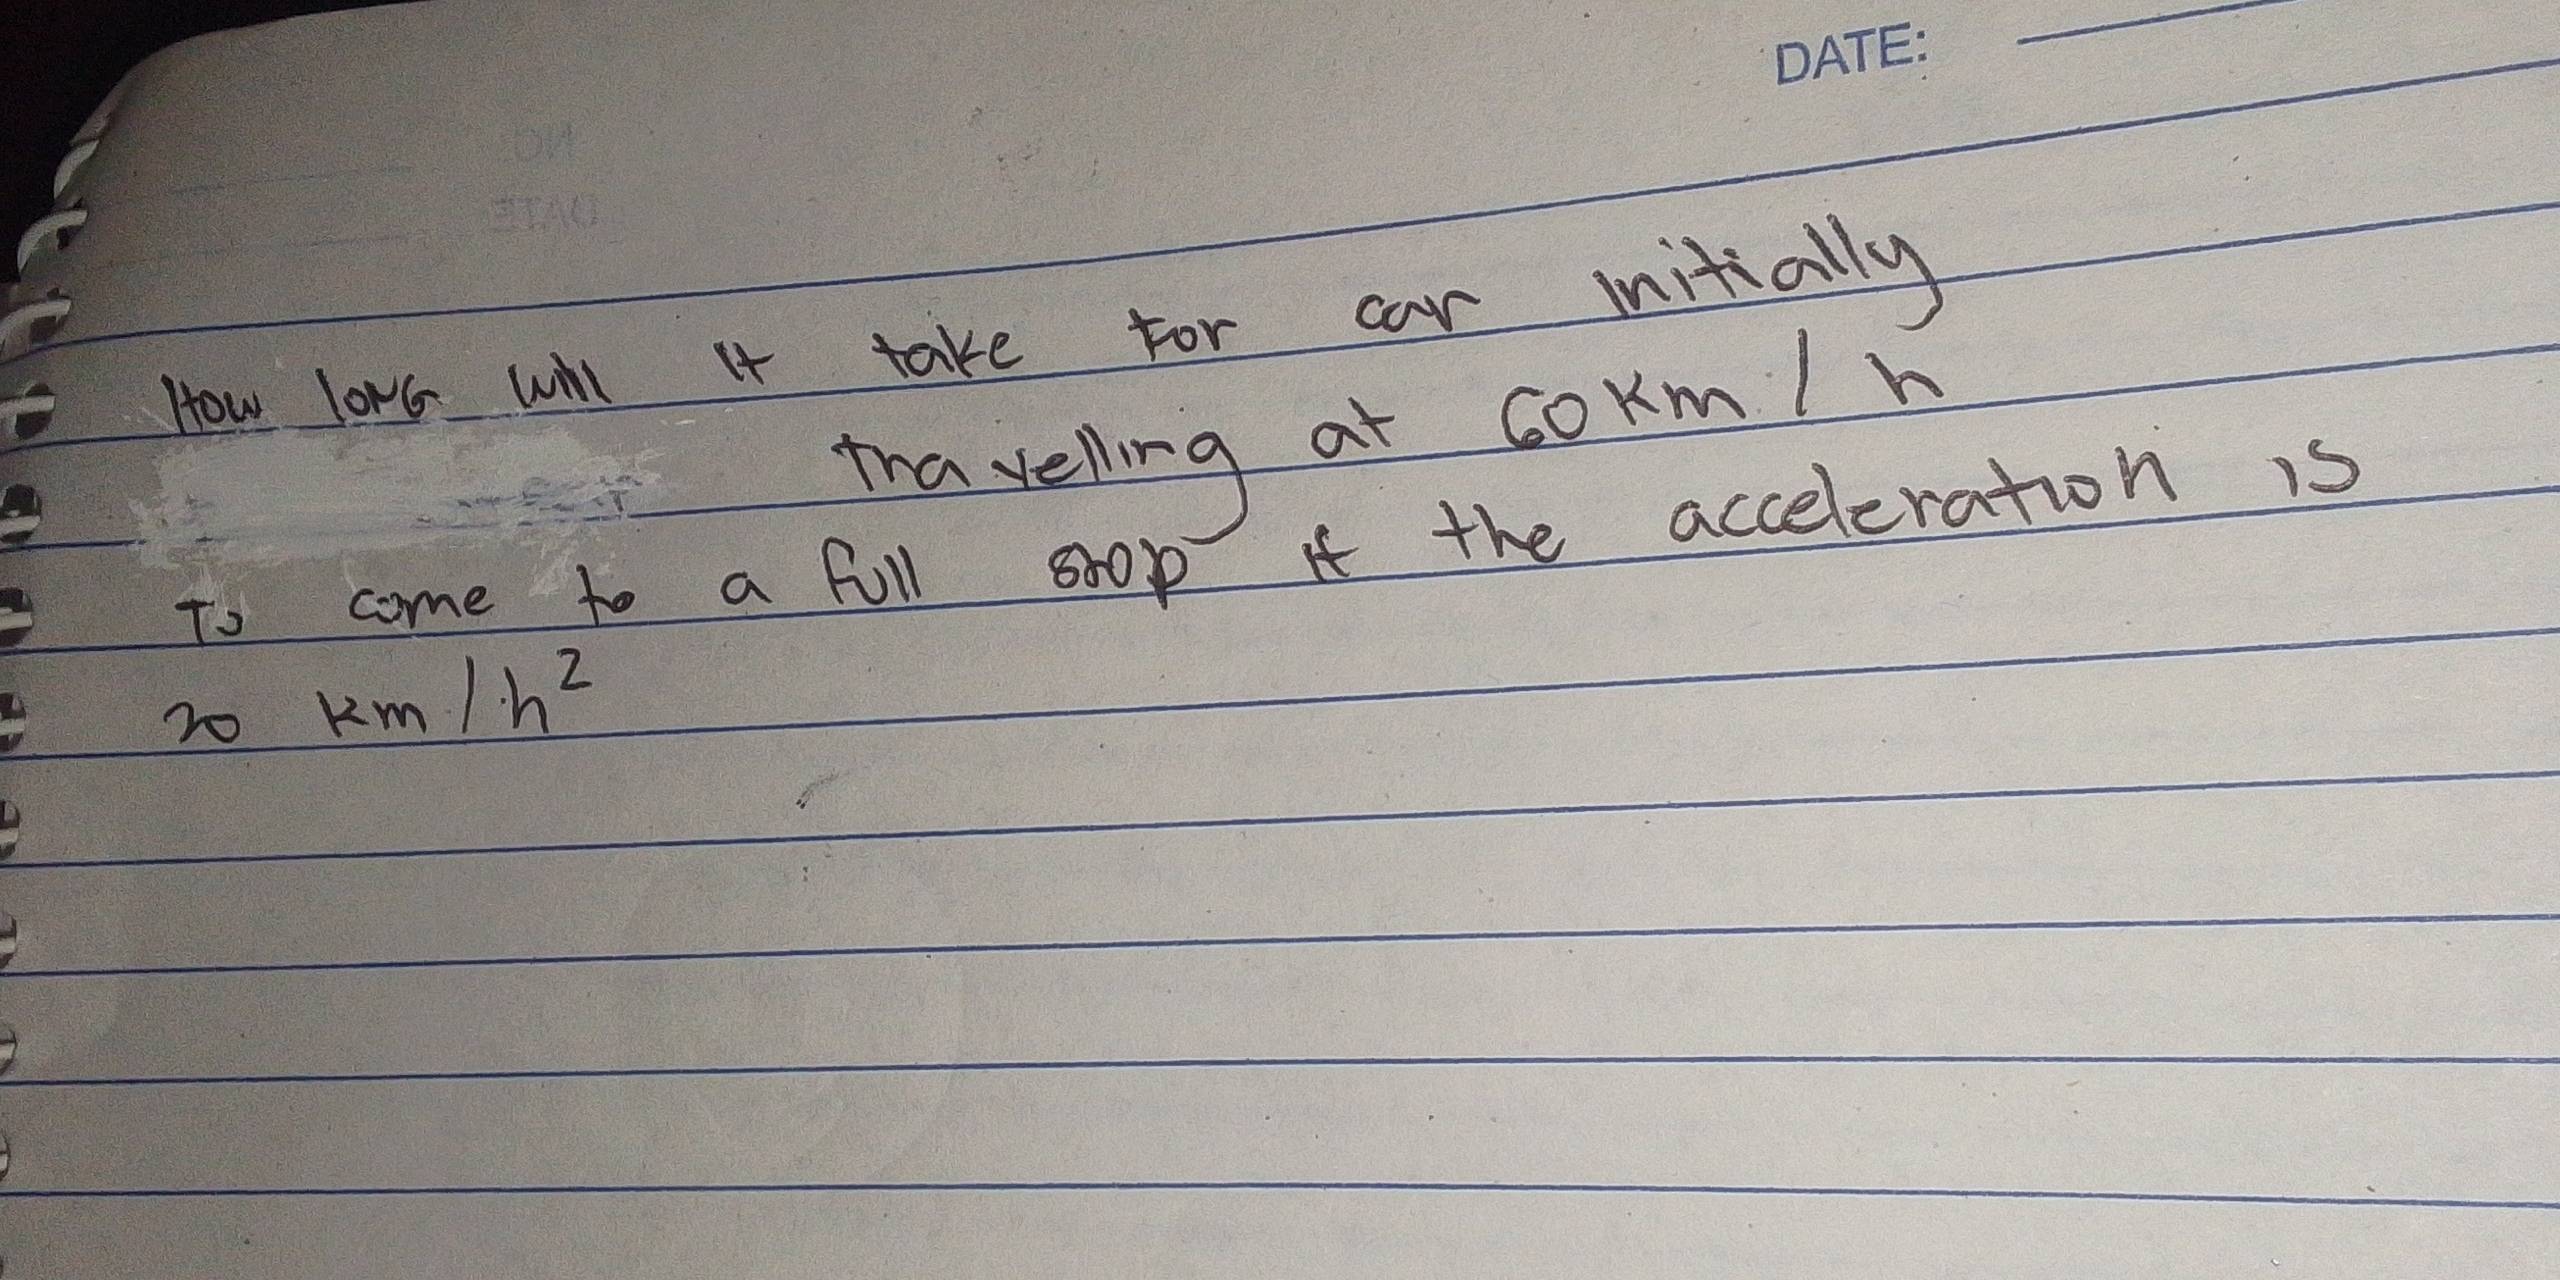 DATE:
How long will it take for car initially
travelling at 60 km/h
To come to a full stop if the acceleration is
20 km/h²